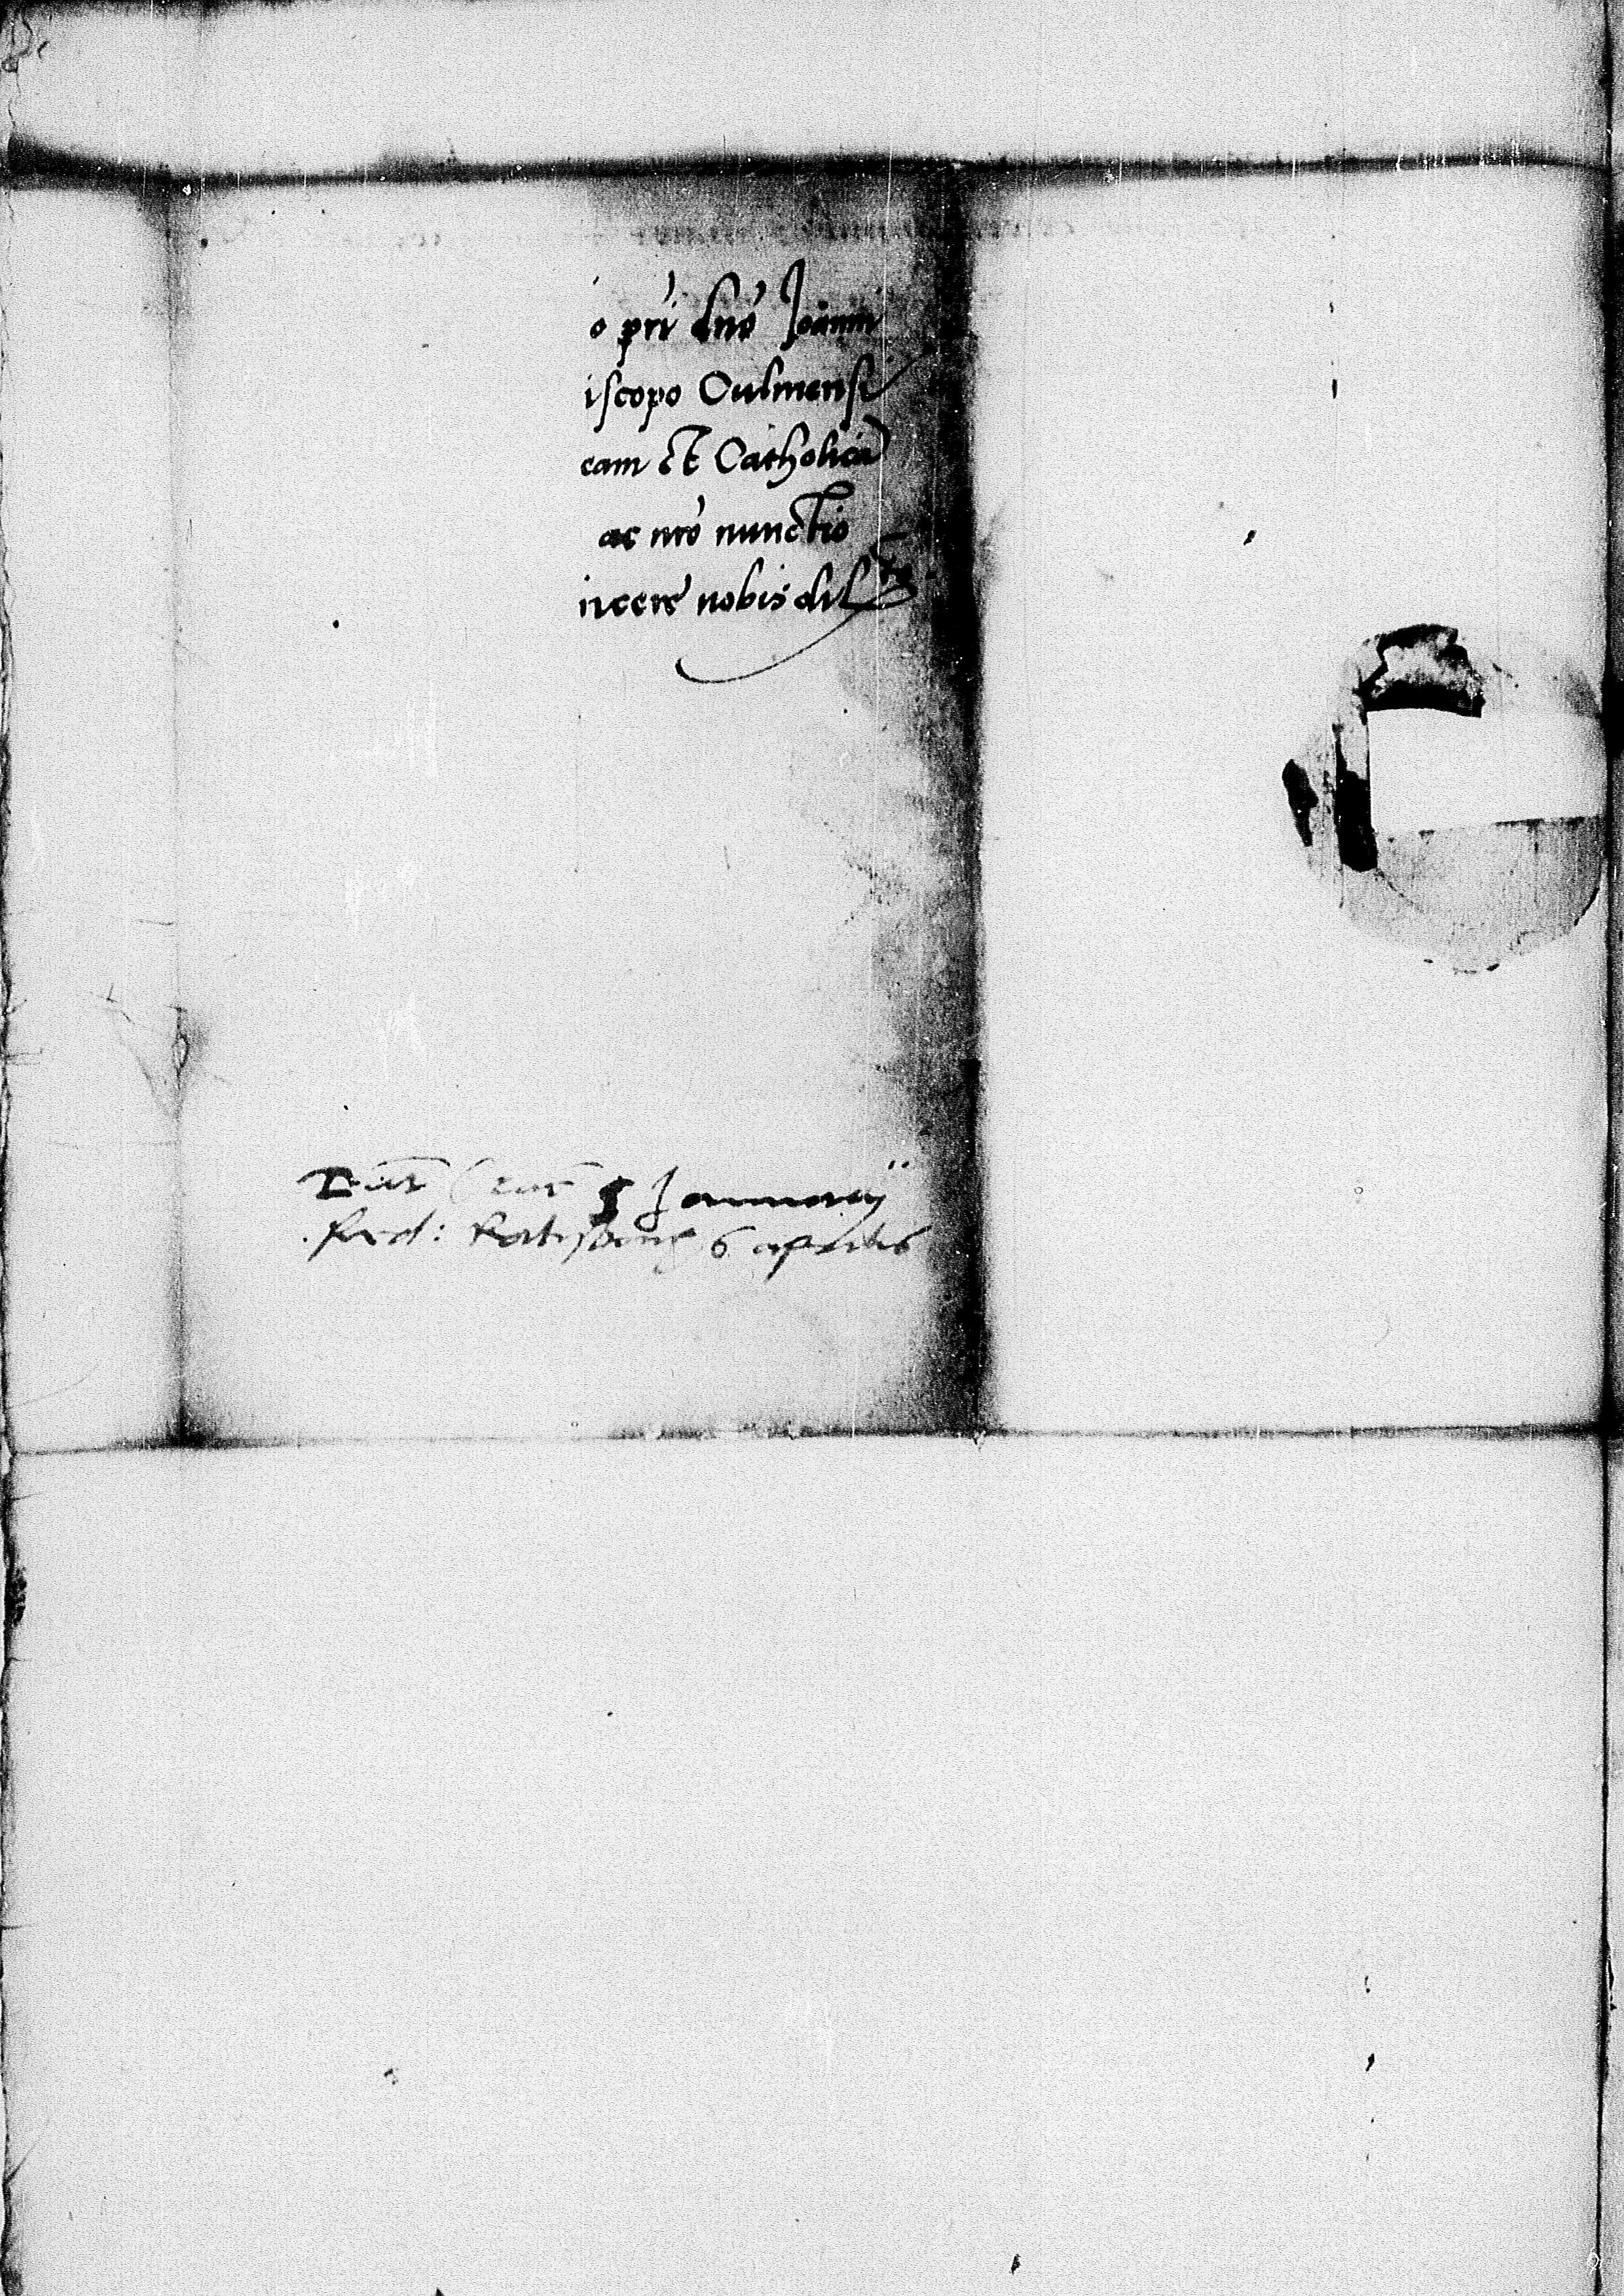 o pri dno Joanni
iscopo Culmensi
eam et Catholicã
ac nro nunctio
incere nobis dilcto
Dat Crac 5 Januarij
Red: Ratisbone 6 aprilis